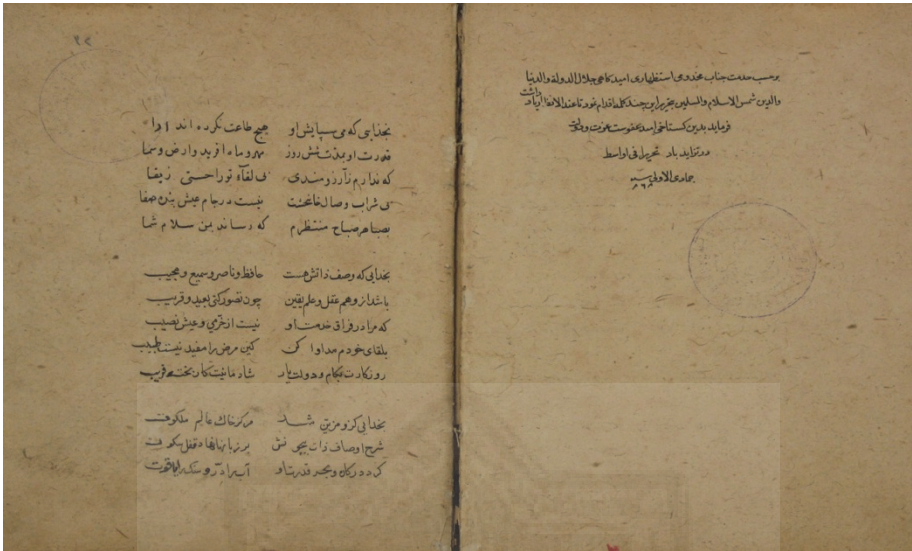 بوجب خدمت جناب مخدومی استظهاری امیدکاهی جلال الدولة والدنیا
والدین شمس الاسلام والمسلمین بتحریر این چند کلمه اقدام نمود تا عند الاتفاق یاد داشت
فرماید بدین کستاخی عفوست عزت و دولت
در تزاید باد تحریرا فی اواسط
جمادی الاولی سنه
۳۲
بخدایی که می ستایش او هیچ طاعت نکرده اند ادا
قدرت او بمدت شش روز مهر و ماه افرید و ارض و سما
که ندارم ز آرزومندی بی لقآء تو راحتی
بی شراب وصال نیست در جام عیش بنده صفا
بصبا هر صباح منتظرم که رساند بمن سلام شما
بخدایی که وصف ذاتش هست حافظ و ناصر و سمیع و مجیب
باشد از وهم عقل و علم یقین چون تصور کنی بعید و قریب
که مرا در فراق خدمت او نیست از خرمی و عیش نصیب
بلقای خودم مداوا کن کین مرض را مفید نیست طبیب
روزکارت بکام و دولت یار شادمانیت کار بخت قریب
بخدایی کزو مزین شد مرکز خاک عالم ملکوت
شرح اوصاف ذات بیچونش بر زبانها نهاد قفل سکوت
کرد در کان و بحر قدرت او آب را در و سنک را یاقوت